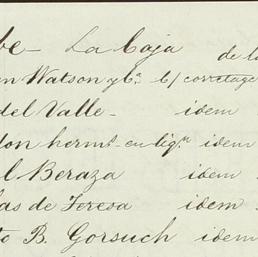 be La Caja de la
n Watson y Cª c/ corretage
del Valle - idem
don hermˢ en liqⁿ idem
l Beraza idem
as de Teresa idem
to B. Gorsuch idem